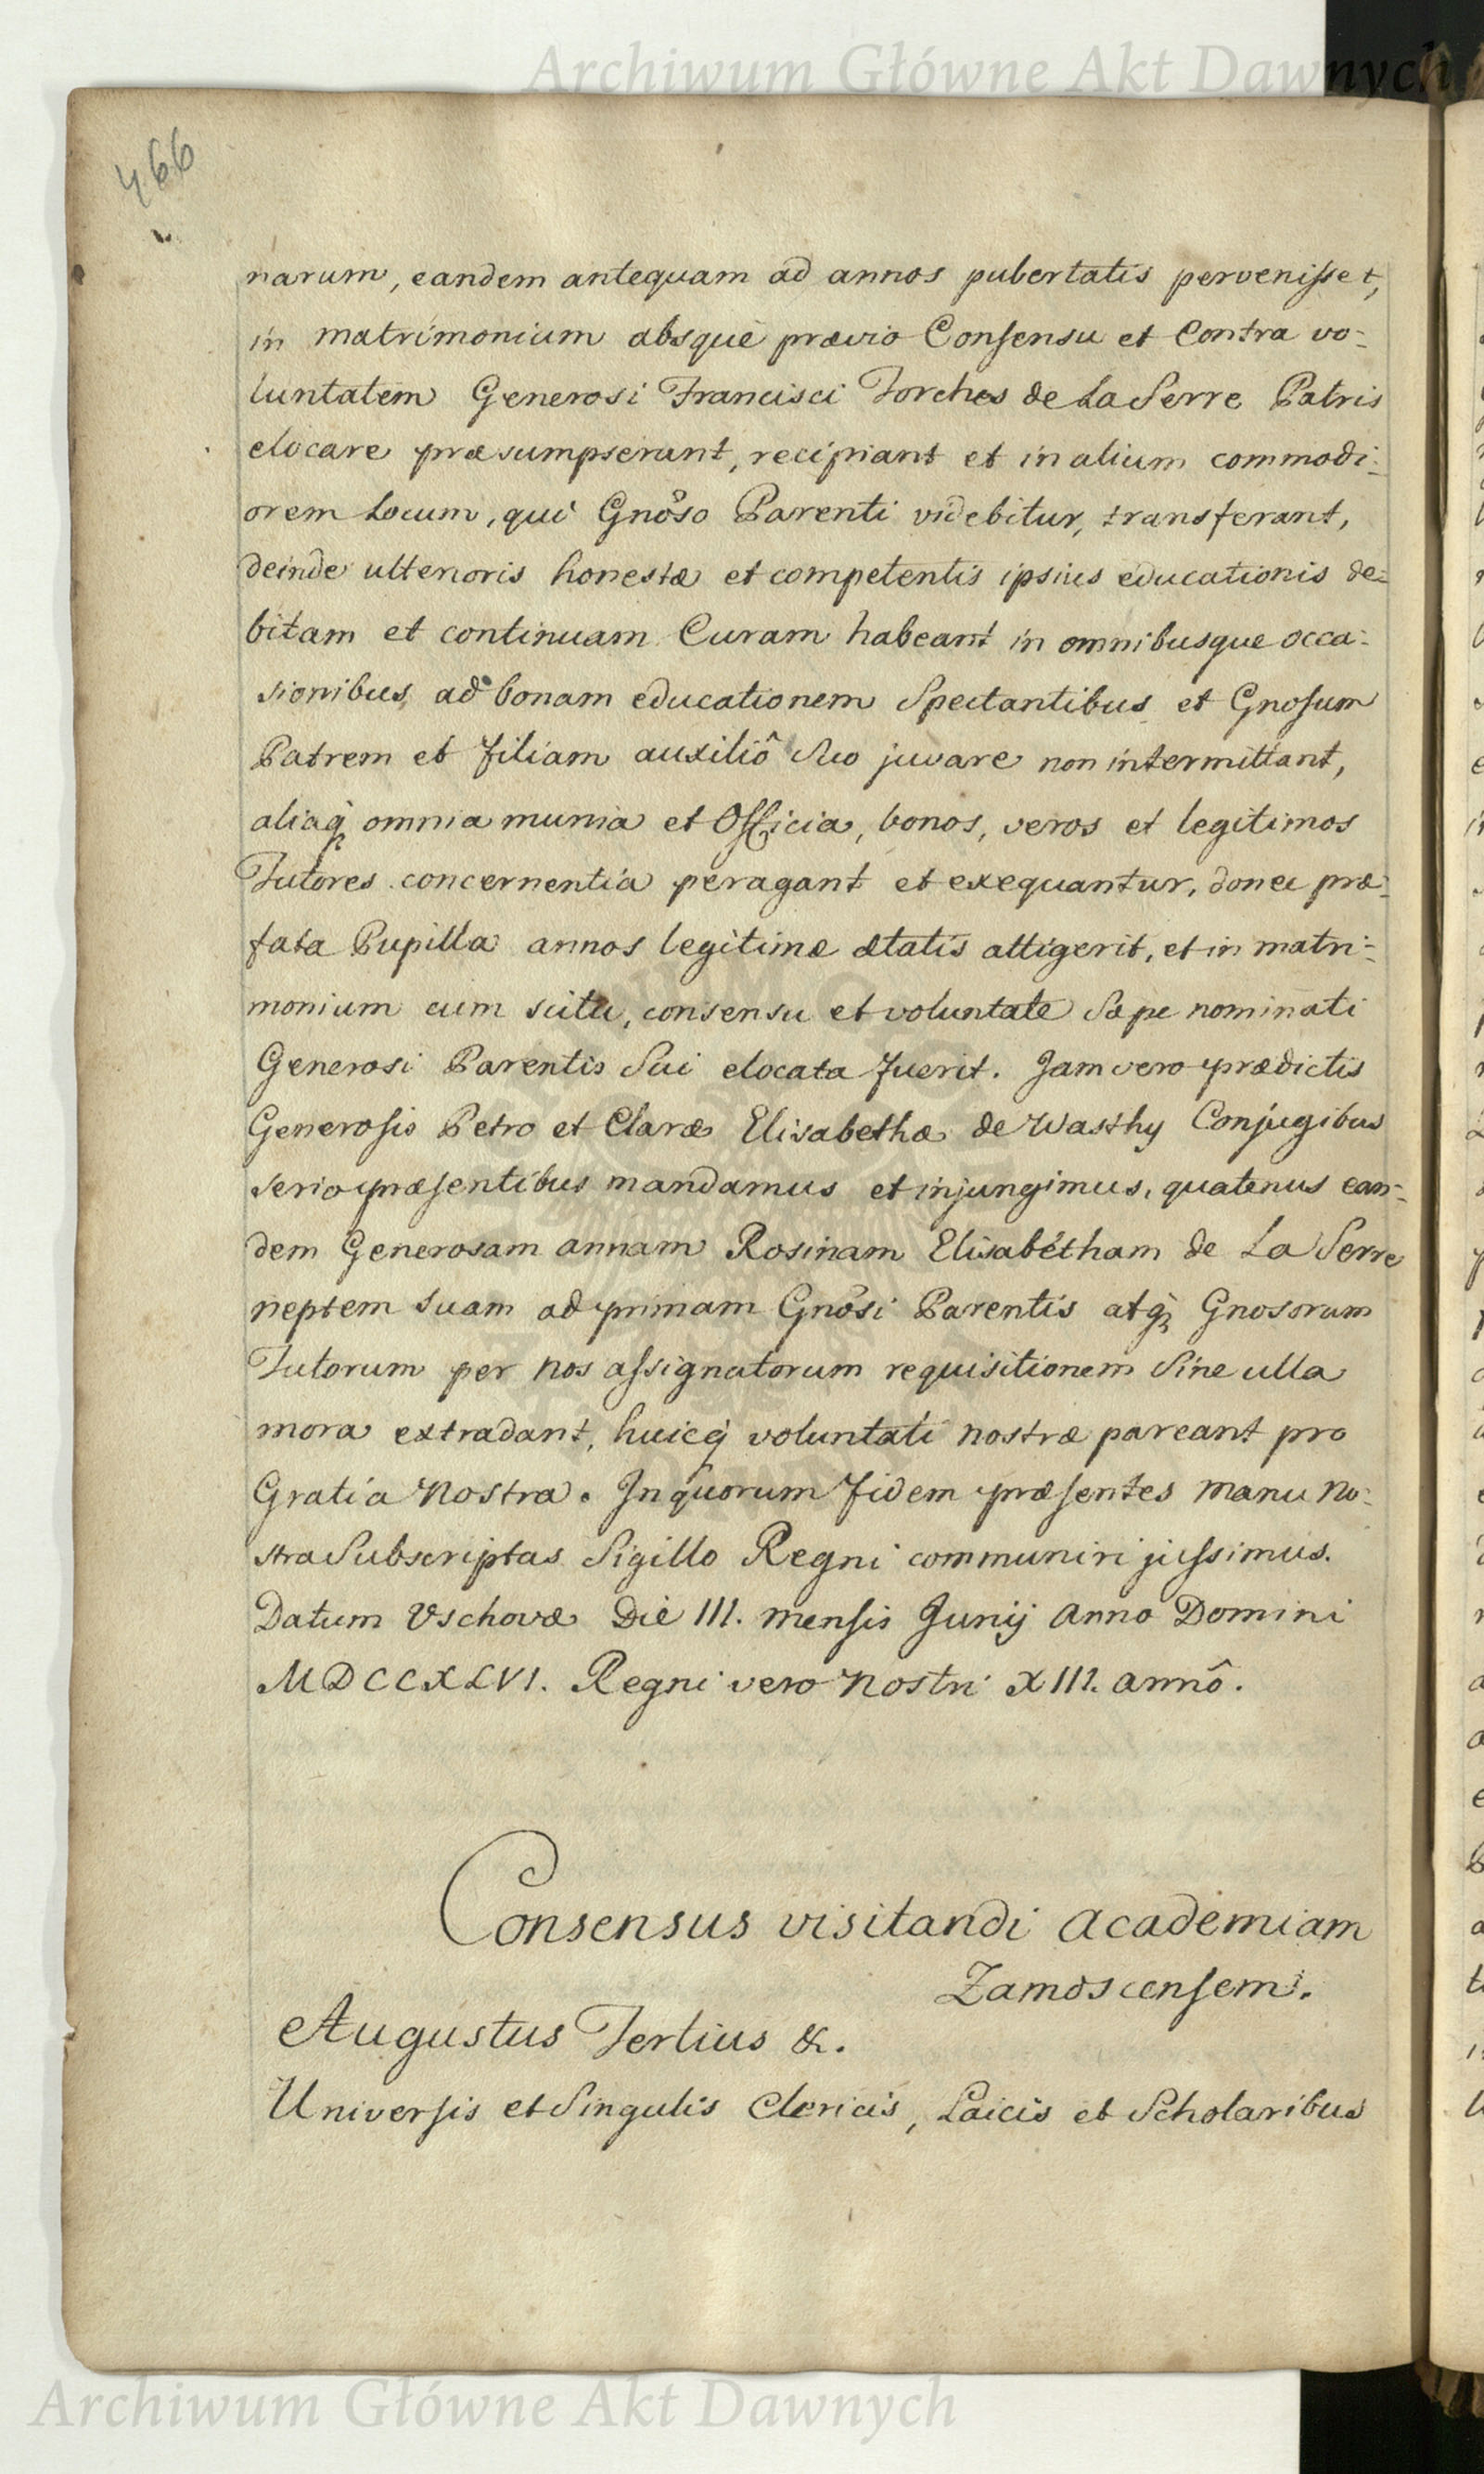 Archiwum Główne Akt Dawnych
466
narum, eandem antequam ad annos pubertatis pervenisset,
in matrimonium absque prævio Consensu et Contra vo-
luntatem Generosi Francisci Torches de La Serre Patris
elocare præsumpserunt, recipiant et in alium commodi-
orem Locum, qui Gnoso Parenti videbitur, transferant,
deinde ulterioris honestæ et competentis ipsius educationis de-
bitam et continuam Curam habeant in omnibusque occa-
sionibus, ad bonam educationem Spectantibus et Gnosum
Patrem et filiam auxiliô Suo juvare non intermittant,
aliaq̃ omnia munia et Officia, bonos, veros et legitimos
Tutores concernentia peragant et exequantur, donec præ-
fata Pupilla annos legitimæ ætatis attigerit, et in matri-
monium cum scitu, consensu et voluntate Sæpe nominati
Generosi Parentis Sui elocata fuerit. Jam vero prædictis
Generosis Petro et Claræ Elisabethæ de Wasthy Conjugibus
serio præsentibus mandamus et injungimus, quatenus ean-
dem Generosam annam Rosinam Elisabétham de La Serre
neptem suam ad primam Gnosi Parentis atq̃ Gnosorum
Tutorum per nos assignatorum requisitionem Sine ulla
mora extradant, huicq̃ voluntati nostræ pareant pro
Gratia Nostra. In quorum fidem præsentes manu no-
stra Subscriptas Sigillo Regni communiri jussimus.
Datum Vschovæ Die III. mensis Junij Anno Domini
MDCCXLVI. Regni vero Nostri XIII. annô.
Consensus visitandi Academiam
Zamoscensem.
Augustus Tertius &.
Universis et Singulis Clericis, Laicis et Scholaribus
Archiwum Główne Akt Dawnych